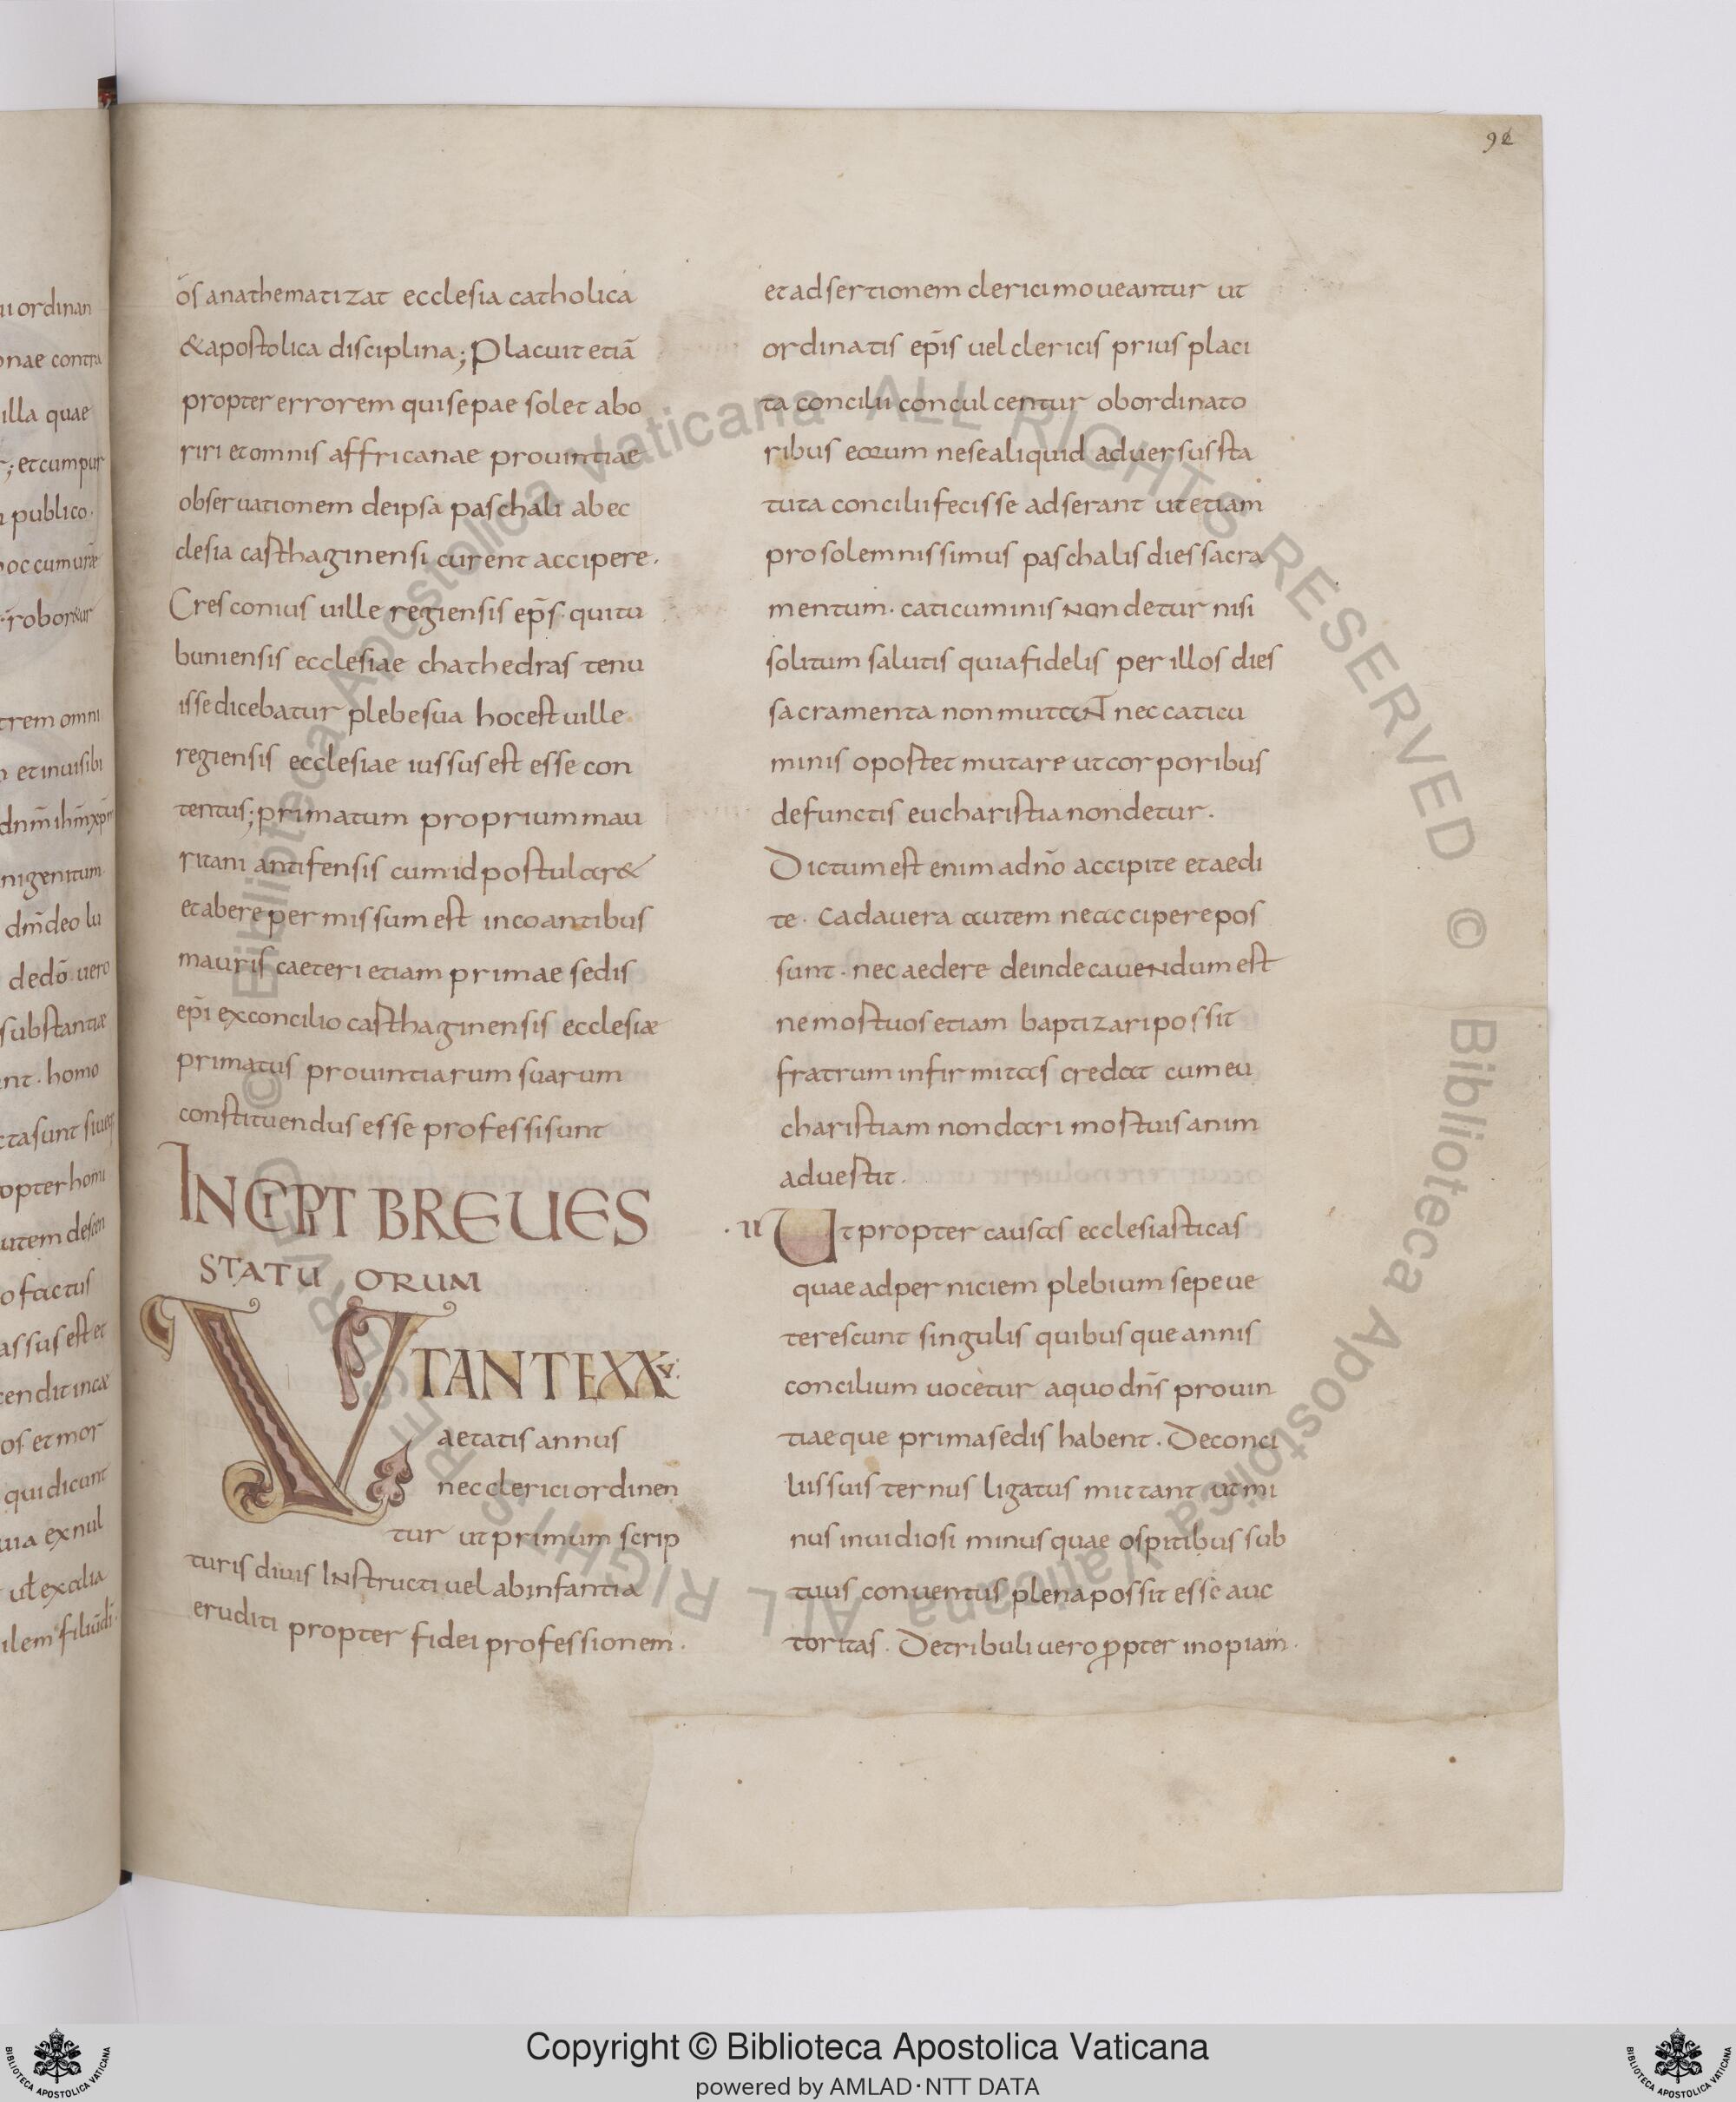 92
ōs anathematizat ecclesia catholica
& apostolica disciplina; Placuit etiā
propter errorem qui sepae solet abo
riri et omnis affricanae prouintiae
obseruationem de ipsa paschali ab ec
clesia casthaginensi curent accipere.
Cresconius uille regiensis ep̄s. qui tu
buniensis ecclesiae chathedras tenu
isse dicebatur plebe sua hoc est uille
regiensis ecclesiae iussus est esse con
tentus; primatum proprium mau
ritani antifensis cum id postular&
et abere permissum est incoantibus
mauris caeteri etiam primae sedis
ep̄i ex concilio casthaginensis ecclesiæ
primatus prouintiarum suarum
constituendus esse professi sunt
INCIPT BREUES
STATUORUM
UT ANTE XXV.
aetatis annus
nec clerici ordinen
tur ut primum scrip
turis diuis INstructi uel ab infantia
eruditi propter fidei professionem.
et adsertionem clerici moueantur ut
ordinatis ep̄is uel clericis prius placi
ta concilii conculcentur ob ordinato
ribus eorum ne se aliquid aduersus sta
tuta concilii fecisse adserant ut etiam
pro solemnissimus paschalis dies sacra
mentum. caticuminis Non detur nisi
solitum salutis quia fidelis per illos dies
sacramenta non mutaNT nec caticu
minis opostet mutare ut corporibus
defunctis eucharistia non detur.
Dictum est enim a dn̄o accipite et aedi
te. Cadauera autem nec accipere pos
sunt. nec aedere deinde caueNdum est
ne mostuos etiam baptizari possit
fratrum infirmitas credat cum eu
charistiam non dari mostuis anim
aduestit.
.II Ut propter causas ecclesiasticas
quae ad perniciem plebium sepe ue
terescunt singulis quibusque annis
concilium uocetur a quo dn̄s prouin
tiaeque prima sedis habent. De conci
liis suis ternus ligatus mittant ut mi
nus inuidiosi minusquae ospitibus sub
tuus conuentus plena possit esse auc
toritas. De tribuli uero ꝓpter inopiam.
© Biblioteca Apostolica Vaticana ALL RIGHTS RESERVED © Biblioteca Apostolica Vaticana ALL RIGHTS RESERVED ©
Copyright © Biblioteca Apostolica Vaticana
powered by AMLAD·NTT DATA
BIBLIOTECA APOSTOLICA VATICANA
BIBLIOTECA APOSTOLICA VATICANA